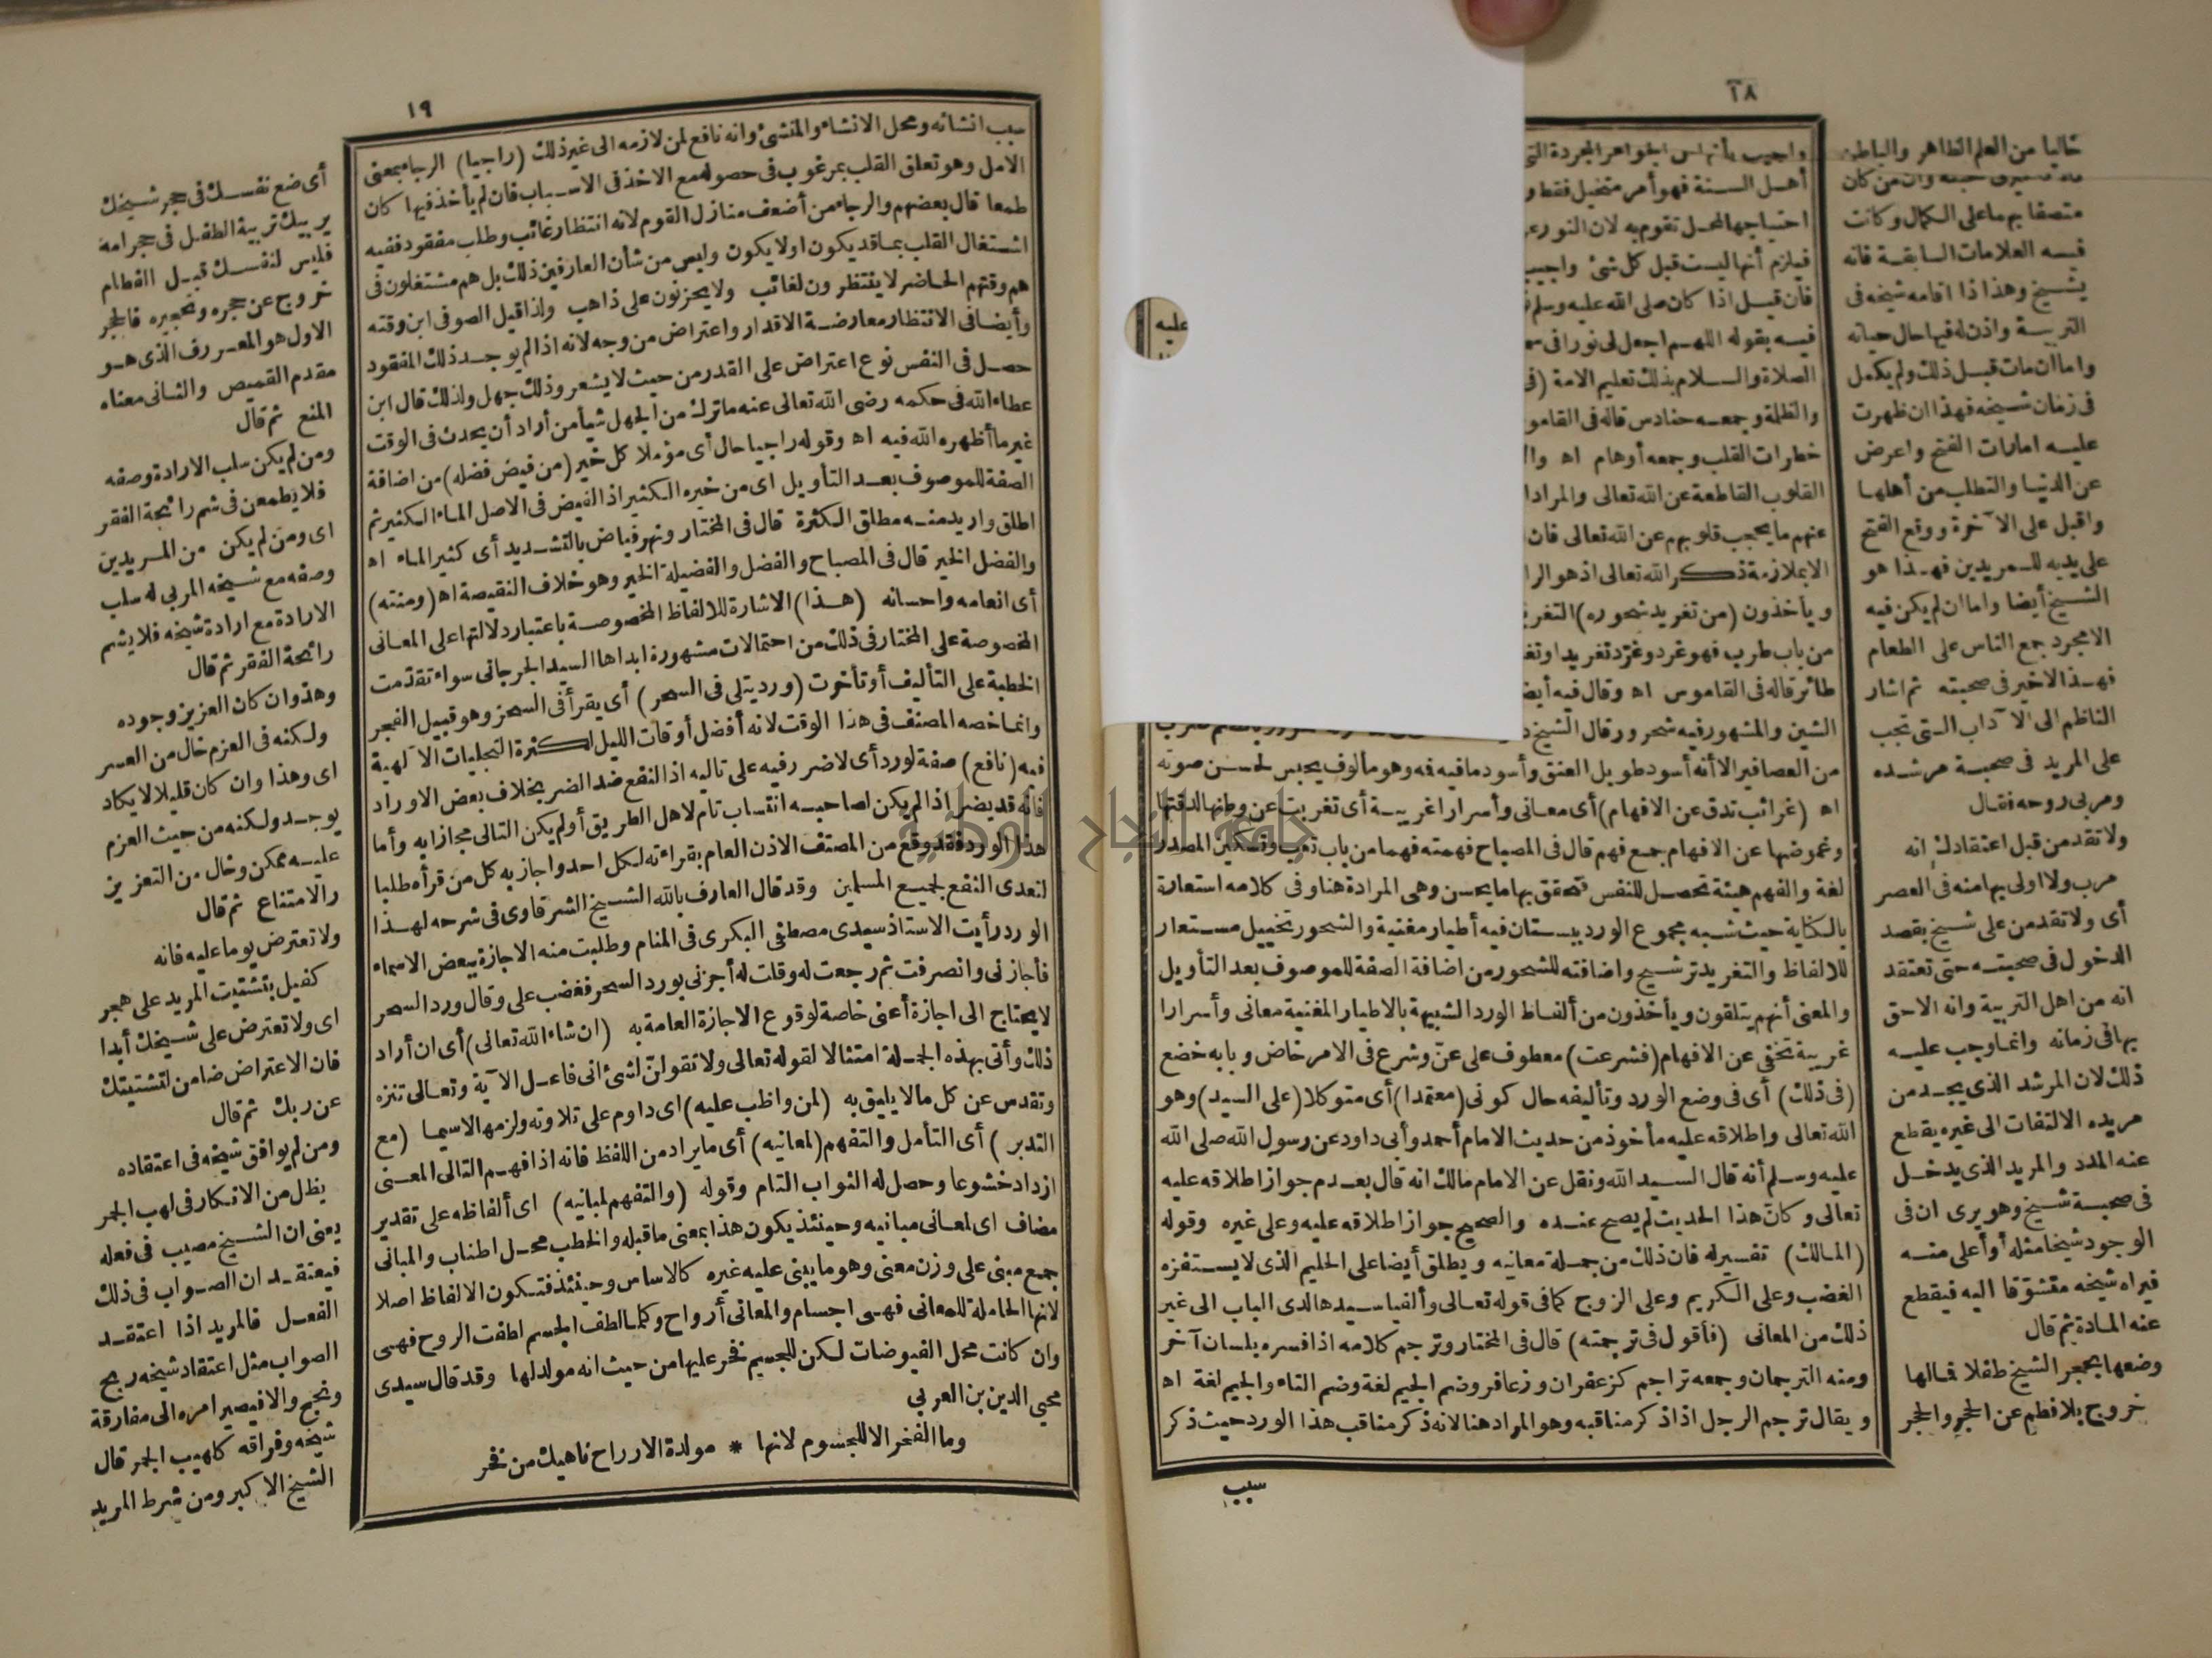 ١٨
خاليا من العلم الظاهر والباطن
متصفا بهما على الكمال وكانت
فيه العلامات السابقة فانه
يتشيخ وهذا اذا اقامه شيخه فى
التربية واذن له فيها حال حياته
واما ان مات قبل ذلك ولم يكمل
فى زمان شيخه فهذا ان ظهرت
عليه امارات الفتح واعرض
عن الدنيا والتطلب من أهلها
واقبل على الآخرة ووقع الفتح
على يديه للمريدين فهذا هو
الشيخ أيضا واما ان لم يكن فيه
الا مجرد جمع الناس على الطعام
فهذا لا خير فى صحبته ثم اشار
الناظم الى الآداب التى تجب
على المريد فى صحبة مرشده
ومربى روحه فقال
ولا تقدمن قبل اعتقادك انه
مرب ولا اولى بها منه فى العصر
أى ولا تقدمن على شيخ بقصد
الدخول فى صحبته حتى تعتقد
انه من اهل التربية وانه الاحق
بها فى زمانه وانما وجب عليه
ذلك لان المرشد الذى يجد من
مريده الالتفات الى غيره يقطع
عنه المدد والمريد الذى يدخل
فى صحبة شيخ وهو يرى ان فى
الوجود شيخا مثله أو أعلى منه
فيراه شيخه متشوقا اليه فيقطع
عنه المادة ثم قال
وضعها بحجر الشيخ طفلا فمالها
خروج بلا فطم عن الحجر والحجر
واجيب بأنها من الجواهر المجردة التى
أهل السنة فهو أمر متخيل فقط و
احتياجها لمحل تقوم به لان النور عر
فيلزم أنها ليست قبل كل شئ واجيب
فان قيل اذا كان صلى الله عليه وسلم
فيه بقوله اللهم اجعل لى نورا فى سم
الصلاة والسلام بذلك تعليم الامة (فى
والظلمة وجمعه حنادس قاله فى القامو
خطرات القلب وجمعه أوهام اه وال
القلوب القاطعة عن الله تعالى والمراد ا
عنهم ما يحجب قلوبهم عن الله تعالى فان
الا بملازمة ذكر الله تعالى اذ هو الرا
ويأخذون (من تغريد شحوره) التغريد
من باب طرب فهو غرد وغرد تغريدا وتغ
طائر قاله فى القاموس اه وقال فيه أيض
الشين والمشهور فيه شحرور وقال الشيخ د
من العصافير الا أنه أسود طويل العنق وأسود ما فيه فه وهو مألوف يحبس لحسن صوته
اه (غرائب تدق عن الافهام) أى معانى وأسرارا غريبة أى تغربت عن وطنها لدقتها
وغموضها عن الافهام جمع فهم قال فى المصباح فهمته فهما من باب تعب وتسكين المصدر
لغة والفهم هيئة تحصل للنفس تتحقق بها ما يحسن وهى المرادة هنا وفى كلامه استعارة
بالكناية حيث شبه مجموع الورد ببستان فيه أطيار مغنية والشحور تخييل مستعار
للالفاظ والتغريد ترشيح واضافته للشحور من اضافة الصفة للموصوف بعد التأويل
والمعنى أنهم يتلقون ويأخذون من ألفاظ الورد الشبيهة بالاطيار المغنية معانى وأسرارا
غريبة تخفى عن الافهام (فشرعت) معطوف على عن وشرع فى الامر خاض وبابه خضع
(فى ذلك) أى فى وضع الورد وتأليفه حال كونى (معتمدا) أى متوكلا (على السيد) وهو
الله تعالى واطلاقه عليه مأخوذ من حديث الامام أحمد وأبى داود عن رسول الله صلى الله
عليه وسلم أنه قال السيد الله ونقل عن الامام مالك انه قال بعدم جواز اطلاقه عليه
تعالى وكأن هذا الحديث لم يصح عنده والصحيح جواز اطلاقه عليه وعلى غيره وقوله
(المالك) تفسير له فان ذلك من جملة معانيه ويطلق أيضا على الحليم الذى لا يستفزه
الغضب وعلى الكريم وعلى الزوج كما فى قوله تعالى وألفيا سيدها لدى الباب الى غير
ذلك من المعانى (فأقول فى ترجمته) قال فى المختار وترجم كلامه اذا فسره بلسان آخر
ومنه الترجمان وجمعه تراجم كزعفران وزعافر وضم الجيم لغة وضم التاء والجيم لغة اه
ويقال ترجم الرجل اذا ذكر مناقبه وهو المراد هنا لانه ذكر مناقب هذا الورد حيث ذكر
سبب
عليه
١٩
سبب انشائه ومحل الانشاء والمنشئ وانه نافع لمن لازمه الى غير ذلك (راجيا) الرجاء بمعنى
الامل وهو تعلق القلب بمرغوب فى حصوله مع الاخذ فى الاسباب فان لم يأخذ فيها كان
طمعا قال بعضهم والرجاء من أضعف منازل القوم لانه انتظار غائب وطلب مفقود ففيه
اشتغال القلب بما قد يكون اولا يكون وليس من شأن العارفين ذلك بل هم مشتغلون فى
هم وقتهم الحاضر لا ينتظرون لغائب ولا يحزنون على ذاهب ولذا قيل الصوفى ابن وقته
وأيضا فى الانتظار معارضة الاقدار واعتراض من وجه لانه اذا لم يوجد ذلك المفقود
حصل فى النفس نوع اعتراض على القدر من حيث لا يشعر وذلك جهل ولذلك قال ابن
عطاء الله فى حكمه رضى الله تعالى عنه ما ترك من الجهل شيأ من أراد أن يحدث فى الوقت
غير ما أظهره الله فيه اه وقوله راجيا حال أى مؤملا كل خير (من فيض فضله) من اضافة
الصفة للموصوف بعد التأويل اى من خيره الكثير اذ الفيض فى الاصل الماء الكثير ثم
اطلق واريد منه مطلق الكثرة قال فى المختار ونهر فياض بالتشديد أى كثير الماء اه
والفضل الخير قال فى المصباح والفضل والفضيلة الخير وهو خلاف النقيصة اه (ومنته)
أى انعامه واحسانه (هذا) الاشارة للالفاظ المخصوصة باعتبار دلالتها على المعانى
المخصوصة على المختار فى ذلك من احتمالات مشهورة ابداها السيد الجرجانى سواء تقدمت
الخطبة على التأليف أو تأخرت (ورد يتلى فى السحر) أى يقرأ فى السحر وهو قبيل الفجر
وانما خصه المصنف فى هذا الوقت لانه أفضل أوقات الليل لكثرة التجليات الآلهية
فيه (نافع) صفة لورد أى لا ضرر فيه على تاليه اذ النفع ضد الضر بخلاف بعض الاوراد
فانه قد يضر اذا لم يكن لصاحبه انتساب تام لاهل الطريق أو لم يكن التالى مجازا به وأما
هذا الورد فقد وقع من المصنف الاذن العام بقراءته لكل احد واجاز به كل من قرأه طلبا
لتعدى النفع لجميع المسلمين وقد قال العارف بالله الشيخ الشرقاوى فى شرحه لهذا
الورد رأيت الاستاذ سيدى مصطفى البكرى فى المنام وطلبت منه الاجازة ببعض الاسماء
فأجازنى وانصرفت ثم رجعت له وقلت له أجزنى بورد السحر فغضب على وقال ورد السحر
لا يحتاج الى اجازة أعنى خاصة لوقوع الاجازة العامة به (ان شاء الله تعالى) أى ان أراد
ذلك وأتى بهذه الجملة امتثالا لقوله تعالى ولا تقولن لشئ انى فاعل الآية وتعالى تنزه
وتقدس عن كل ما لا يليق به (لمن واظب عليه) اى داوم على تلاوته ولزمها لاسيما (مع
التدبر) أى التأمل والتفهم (لمعانيه) أى ما يراد من اللفظ فانه اذا فهم التالى المعنى
ازداد خشوعا وحصل له الثواب التام وقوله (والتفهم لمبانيه) اى ألفاظه على تقدير
مضاف اى لمعانى مبانيه وحينئذ يكون هذا بمعنى ما قبله والخطب محل اطناب والمبانى
جمع مبنى على وزن معنى وهو ما يبنى عليه غيره كالاساس وحينئذ فتكون الالفاظ اصلا
لانها الحاملة للمعانى فهى اجسام والمعانى أرواح وكلما لطف الجسم لطفت الروح فهى
وان كانت محل الفيوضات لكن للجسم فخر عليها من حيث انه مولد لها وقد قال سيدى
محيى الدين بن العربى
وما الفخر الا للجسوم لانها * مولدة الارواح ناهيك من فخر
أى ضع نفسك فى حجر شيخك
يربيك تربية الطفل فى حجر امه
فليس لنفسك قبل الفطام
خروج عن حجره وتحجيره فالحجر
الاول هو المعروف الذى هو
مقدم القميص والثانى معناه
المنع ثم قال
ومن لم يكن سلب الارادة وصفه
فلا يطمعن فى شم رائحة الفقر
اى ومن لم يكن من المريدين
وصفه مع شيخه المربى له سلب
الارادة مع ارادة شيخه فلا يشم
رائحة الفقر ثم قال
وهذوان كان العزيز وجوده
ولكنه فى العزم خال من العسر
اى وهذا وان كان قليلا لا يكاد
يوجد ولكنه من حيث العزم
عليه ممكن وخال من التعزيز
والامتناع ثم قال
ولا تعترض يوما عليه فانه
كفيل بتشتيت المريد على هجر
اى ولا تعترض على شيخك أبدا
فان الاعتراض ضامن لتشتيتك
عن ربك ثم قال
ومن لم يوافق شيخه فى اعتقاده
يظل من الانكار فى لهب الجمر
يعنى ان الشيخ مصيب فى فعله
فيعتقد ان الصواب فى ذلك
الفعل فالمريد اذا اعتقد
الصواب مثل اعتقاد شيخه ربح
ونجح والا فيصير امره الى مفارقة
شيخه وفراقه كلهيب الجمر قال
الشيخ الاكبر ومن شرط المريد
جامعة النجاح الوطنية